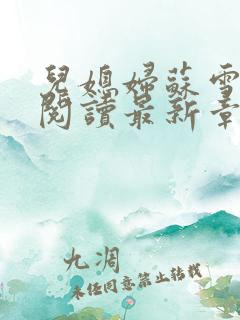 兒媳婦蘇雪
閱讀最新章
九凋
未任同意禁止转载